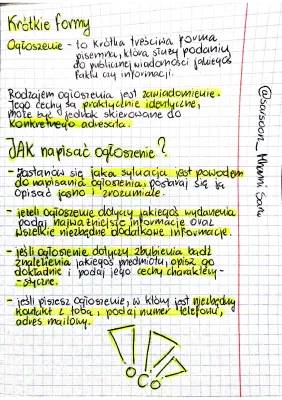 Krótkie formy
Ogłoszenie - to krótka treściwa forma
pisemna, która służy podaniu
do publicznej wiadomości jakiegoś
faktu czy informacji.
Rodzajem ogłoszenia jest zawiadomienie.
Jego cechy są praktycznie identyczne,
może być jednak skierowane do
konkretnego adresata.
JAK napisać ogłoszenie?
- zastanów się jaka sytuacja jest powodem
do napisania ogłoszenia, postaraj się ją
opisać jasno i zrozumiale.
- jeżeli ogłoszenie dotyczy jakiegoś wydarzenia
podaj najważniejsze informacje oraz
wszelkie niezbędne dodatkowe informacje.
- jeśli ogłoszenie dotyczy zgubienia bądź
znalezienia jakiegoś przedmiotu, opisz go
dokładnie i podaj jego cechy charaktery-
-styczne.
- jeśli piszesz ogłoszenie, w który jest niezbędny
kontakt z tobą, podaj numer telefonu,
adres mailowy.